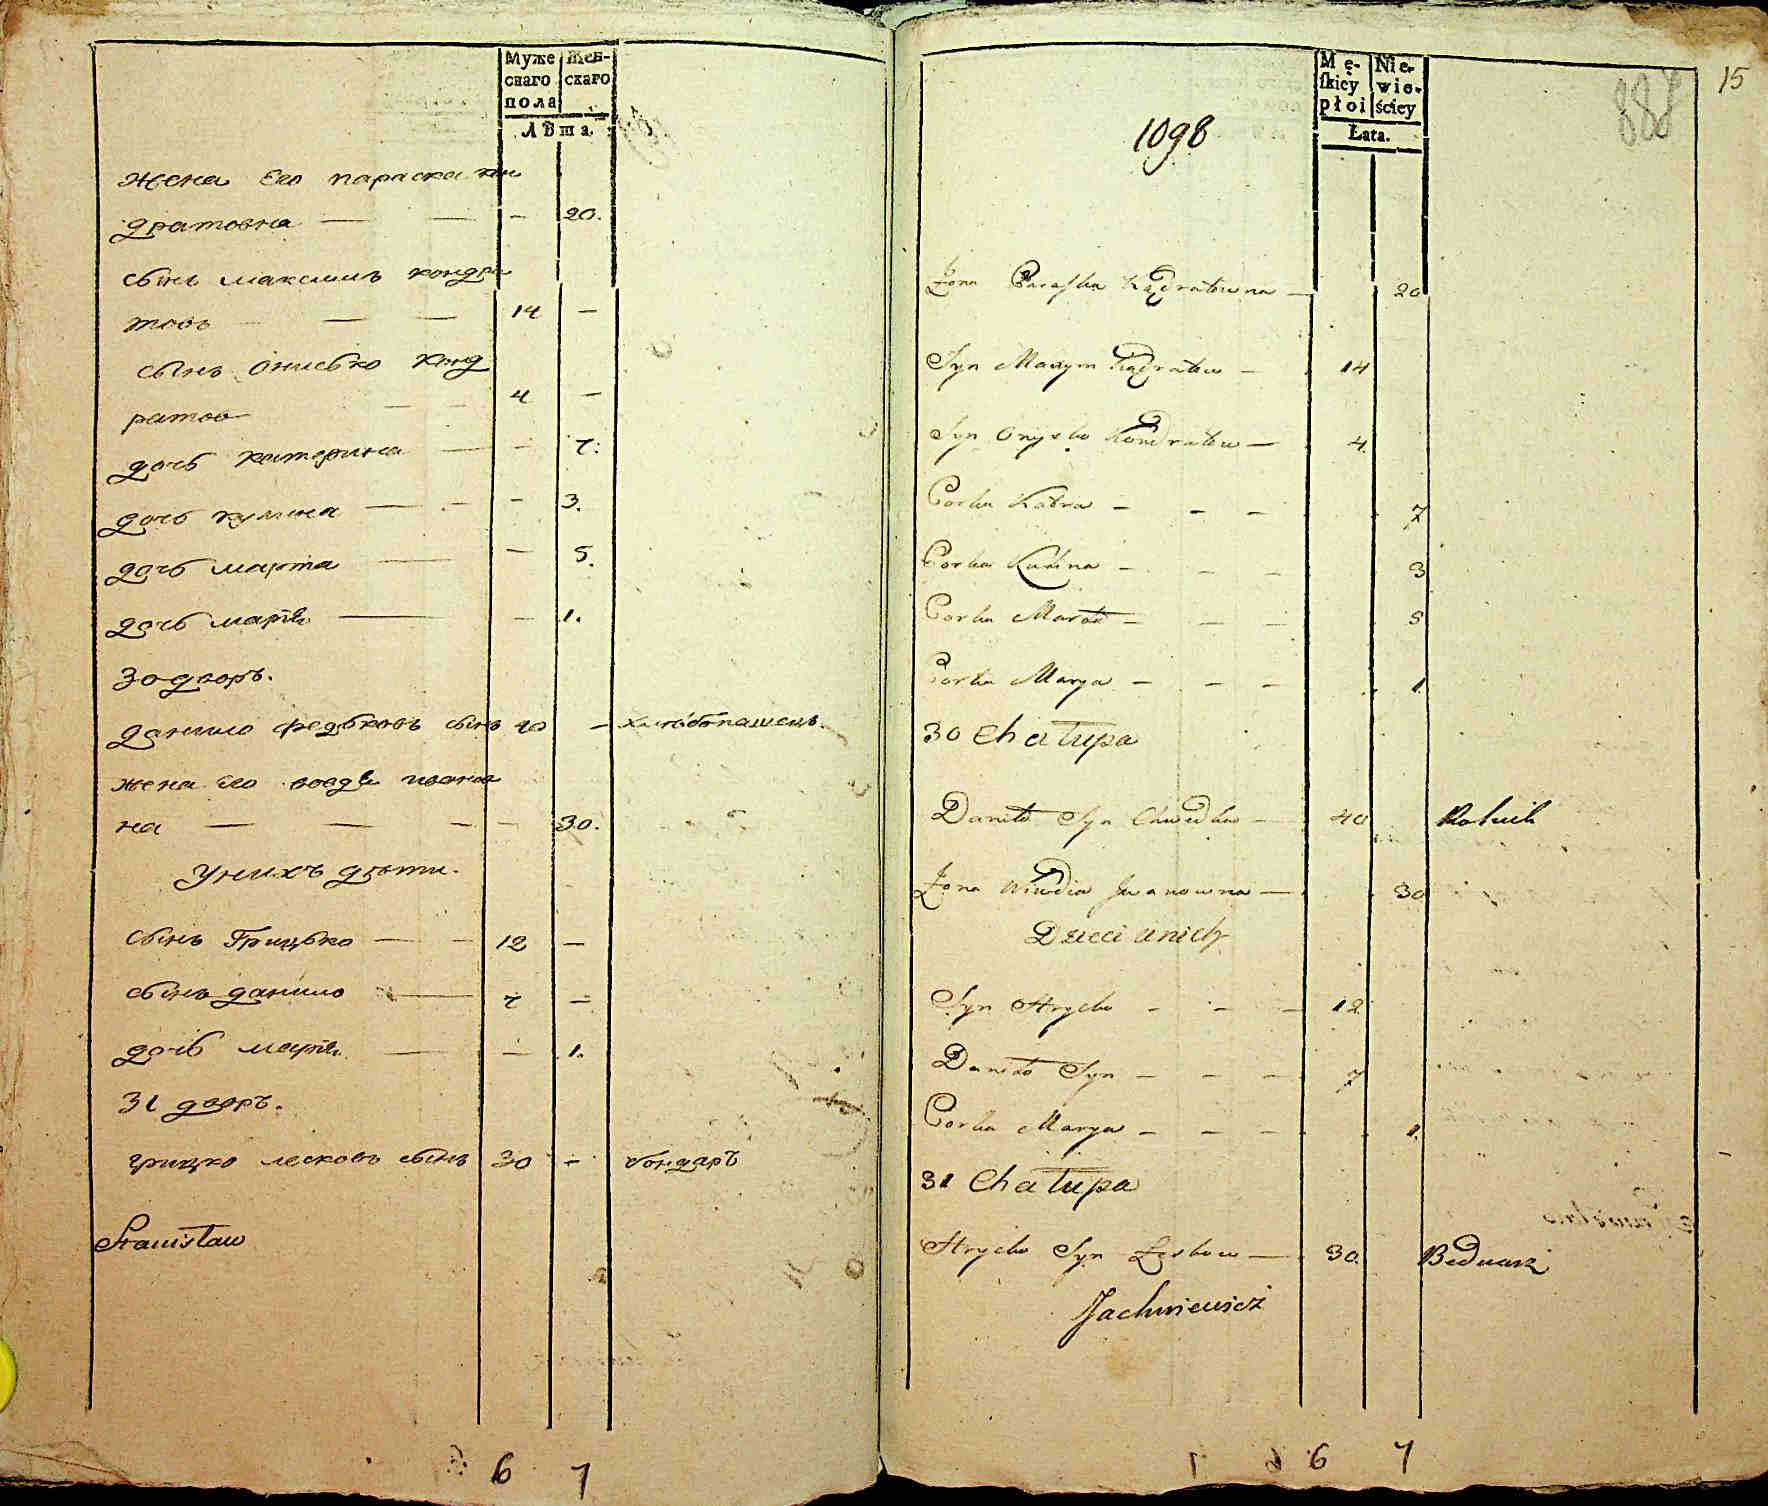 Муже Жен-
скаго скаго
пола
Лѣта.
жена Его параска кон
дратовна — — — 20.
сынъ максимъ кондра
товъ — — 14 —
сынъ Онисько конд
ратов — — 4 —
дочь катерина — — 7.
дочь кулина — — — 3.
дочь марта — — 5.
дочь марія — — 1.
30 дворъ.
данило федьковъ сынъ 40 — хлѣбопашецъ.
жена Его вовдя иванов
на — — — — 30.
У нихъ дѣти.
сынъ Грицько — — 12 —
сынъ данило — 7 —
дочь марія — — 1.
31 дворъ.
грицко лесковъ сынъ 30 — бондаръ
Stanisław
6 7
15
888
Mę- Nie-
skiey wie-
płci ściey
Łata.
1098
Żona Paraska Kądratowna — 20
Syn Maxym Kądratow — 14
Syn Onysko Kondratow — 4
Corka Katra — — — 7
Corka Kulina — — — 3
Corka Marta — — — 5
Corka Marya — — — 1
30 Chałupa
Daniło Syn Chwedkow — 40 Rolnik
Żona Wiwdia Jwanowna — 30
Dzieci u nich
Syn Hrycko — — — 12
Daniło Syn — — — 7
Corka Marya — — — 1.
31 Chałupa
Hrycko Syn Leskow — 30. Bednarz
Jachniewicz
6 7